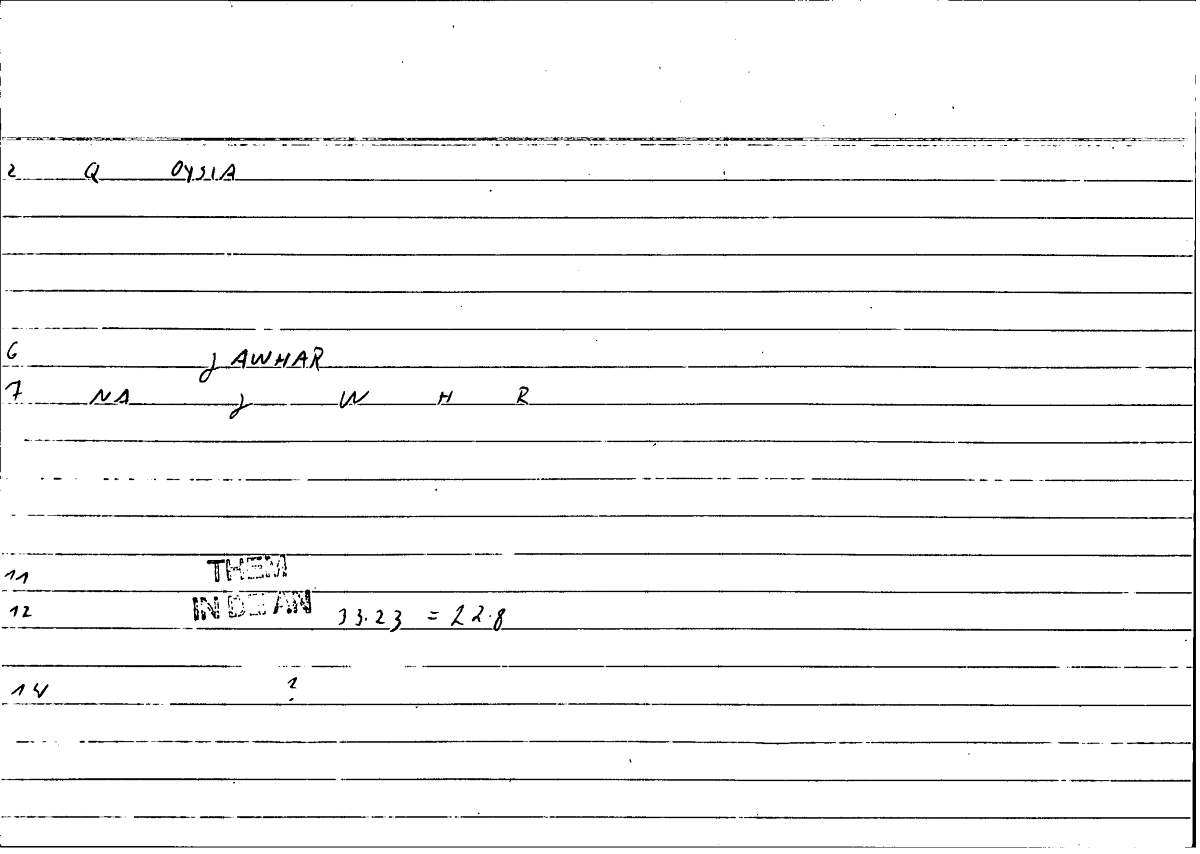 2 Q OYSIA
6 JAWHAR
7 NA J W H R
11 THEM
12 IN DEAN 33.23 = 22.8
14 ?